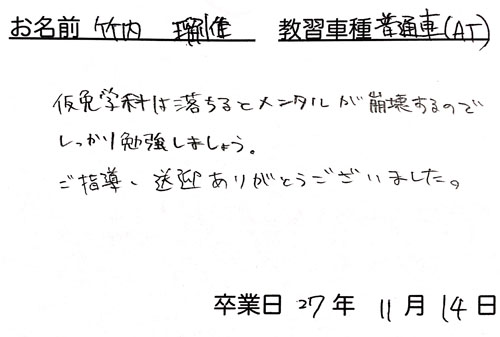 お名前 竹内 瑠唯 教習車種 普通車(AT)
仮免学科は落ちるとメンタルが崩壊するので
しっかり勉強しましょう。
ご指導、送迎ありがとうございました。
卒業日 27年 11月 14日